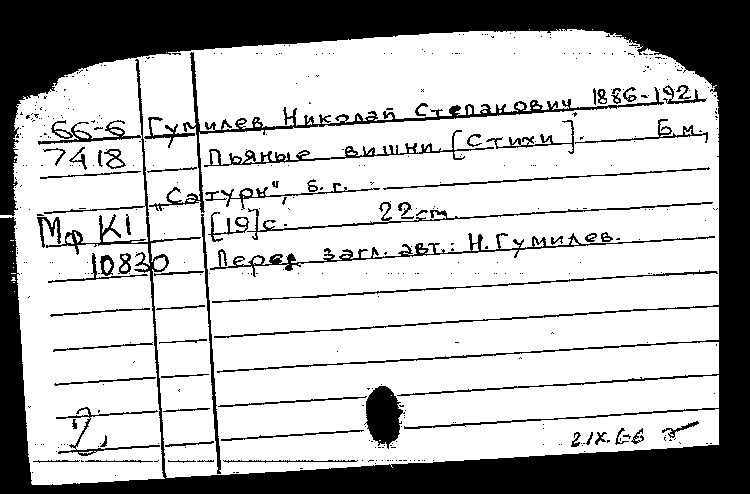 66-6 Гумилев, Николай Степанович, 1886-1921
7418 Пьяные вишни [Стихи]. Б.м.,
„Сатурн", б.г.
Мф К1 [19]с. 22cm
10830 Перед загл. авт.: Н. Гумилев.
2